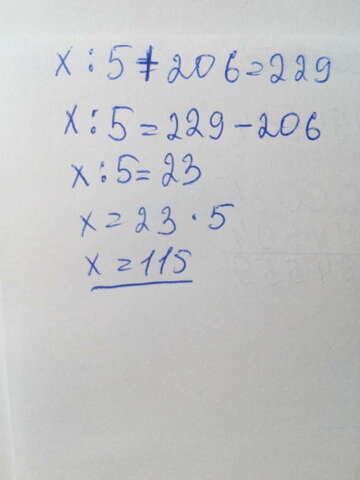 x : 5 + 206 = 229
x : 5 = 229 - 206
x : 5 = 23
x = 23 · 5
x = 115